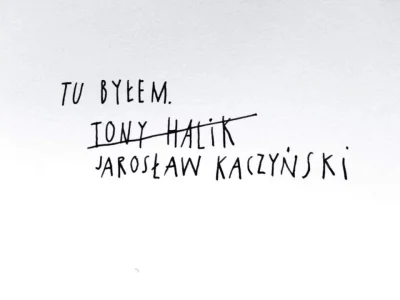 TU BYŁEM.
TONY HALiK
JAROSŁAW KACZYŃSKi